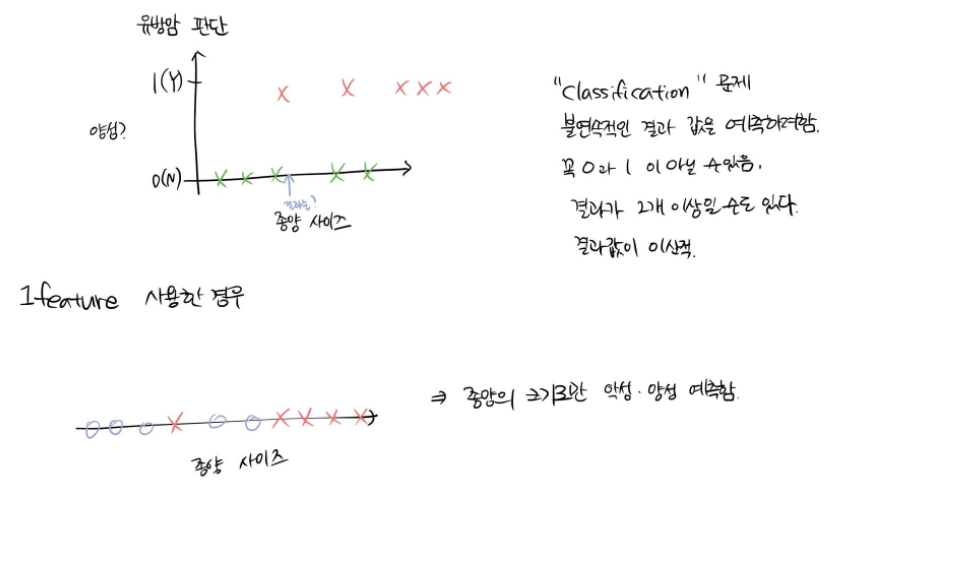 유방암 판단
1(Y)
양성?
0(N)
결과는?
종양 사이즈
"Classification" 문제
불연속적인 결과 값을 예측하려함.
꼭 0과 1 이 아닐 수 있음.
결과가 2개 이상일 수도 있다.
결과값이 이산적.
1feature 사용한 경우
종양 사이즈
⇒ 종양의 크기로만 악성·양성 예측함.